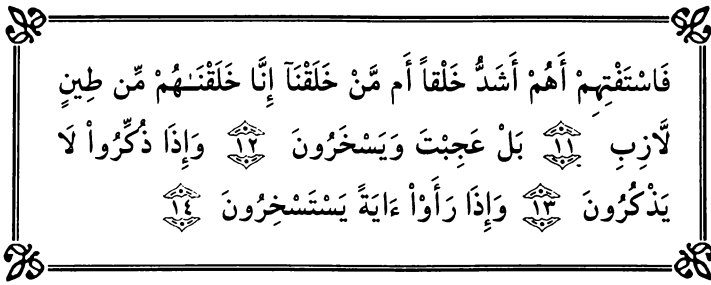 فَاسْتَفْتِهِمْ أَهُمْ أَشَدُّ خَلْقاً أَم مَّنْ خَلَقْنَآ إِنَّا خَلَقْنَـٰهُمْ مِّن طِينٍ
لَّازِبِ ١١ بَلْ عَجِبْتَ وَيَسْخَرُونَ ١٢ وَإِذَا ذُكِّرُواْ لَا
يَذْكُرُونَ ١٣ وَإِذَا رَأَوْاْ ءَايَةً يَسْتَسْخِرُونَ ١٤